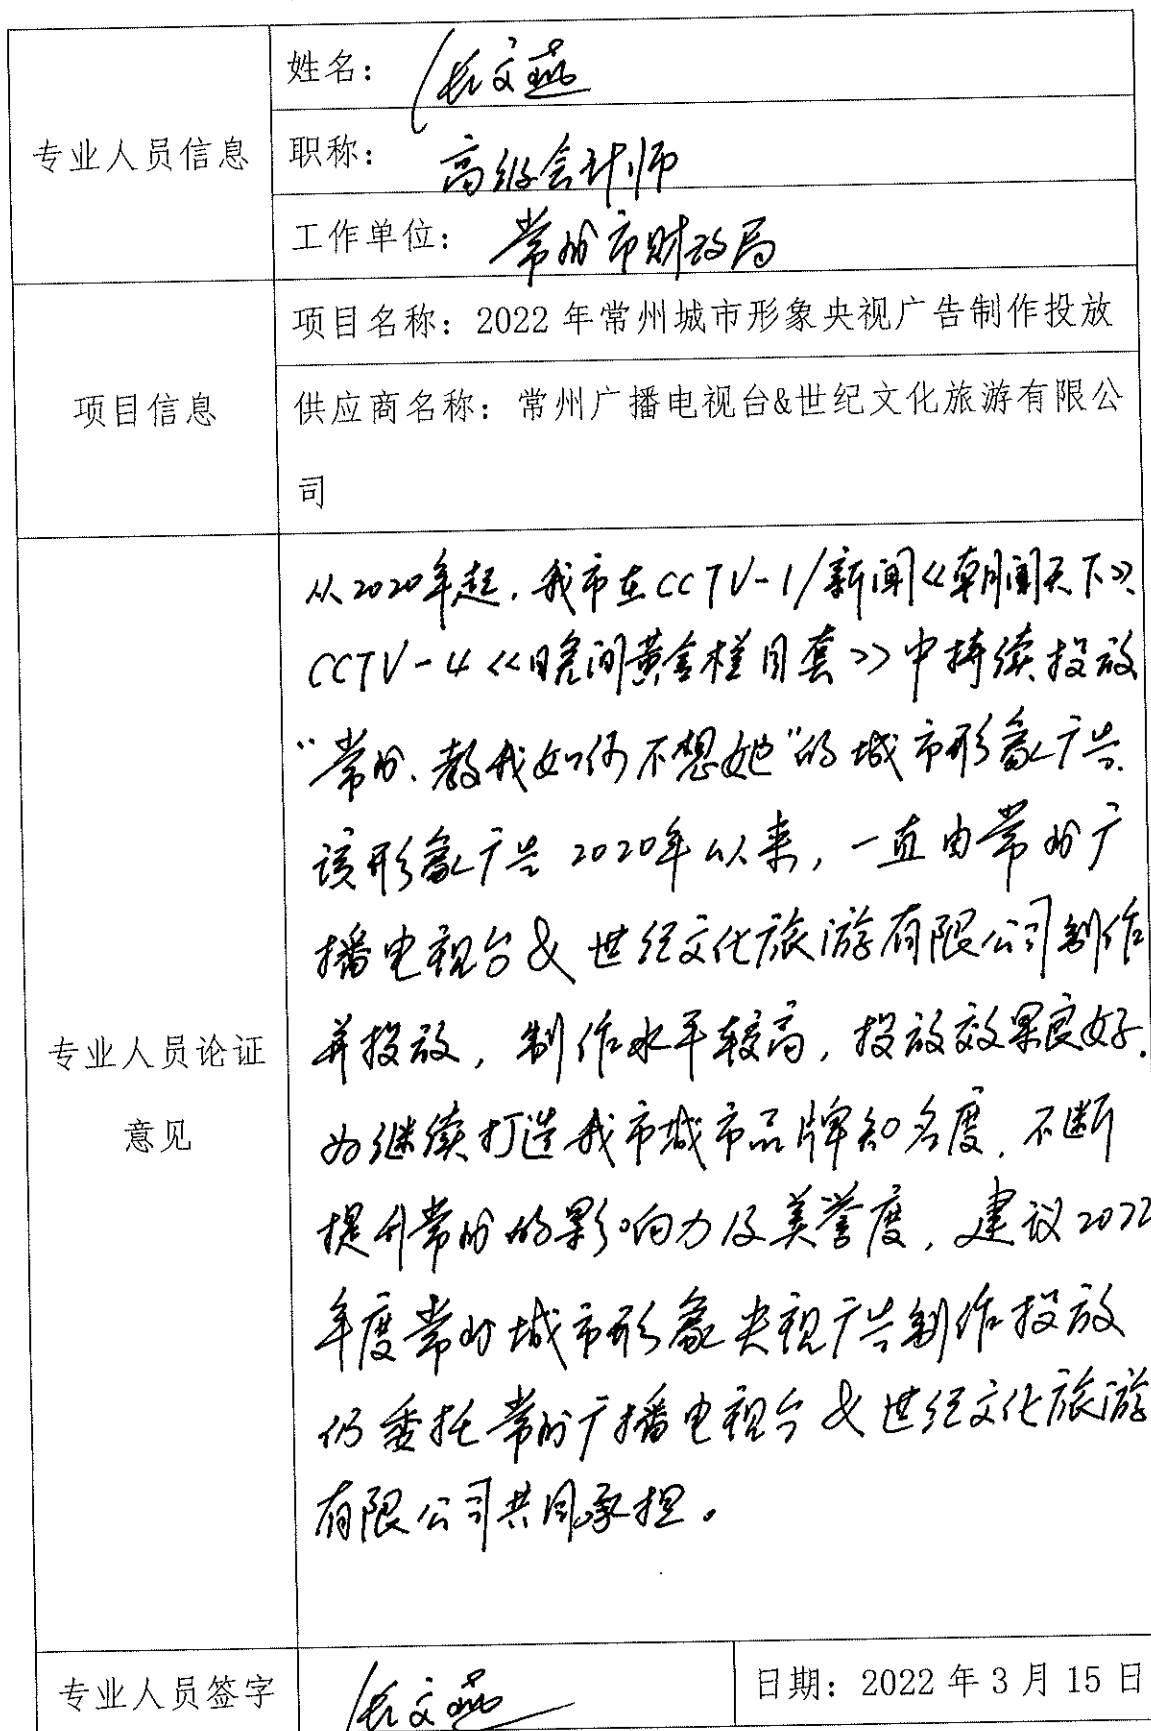 姓名：张文燕
专业人员信息
职称：高级会计师
工作单位：常州市财政局
项目名称：2022 年常州城市形象央视广告制作投放
项目信息
供应商名称：常州广播电视台&世纪文化旅游有限公
司
从2020年起，我市在CCTV-1/新闻《朝闻天下》、
CCTV-4《晚间黄金栏目套》中持续投放
“常州，教我如何不想她”的城市形象广告.
该形象广告2020年以来，一直由常州广
播电视台&世纪文化旅游有限公司制作
并投放，制作水平较高，投放效果良好.
为继续打造我市城市品牌知名度，不断
提升常州的影响力及美誉度，建议2022
年度常州城市形象央视广告制作投放
仍委托常州广播电视台&世纪文化旅游
有限公司共同承担。
专业人员论证
意见
专业人员签字 张文燕 日期：2022 年 3 月 15 日